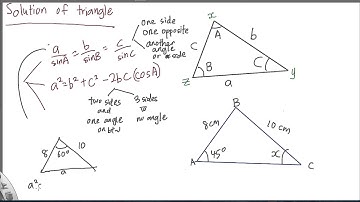 Solution of triangle
a/sinA = b/sinB = c/sinC
one side
one opposite
another
angle
or side
a²=b²+c²-2bc(cosA)
two sides
and
one angle
3 sides
no angle
x
A
c
b
z
B
C
y
a
8
60°
10
a
a²=
B
8cm
10cm
A
45°
x
C